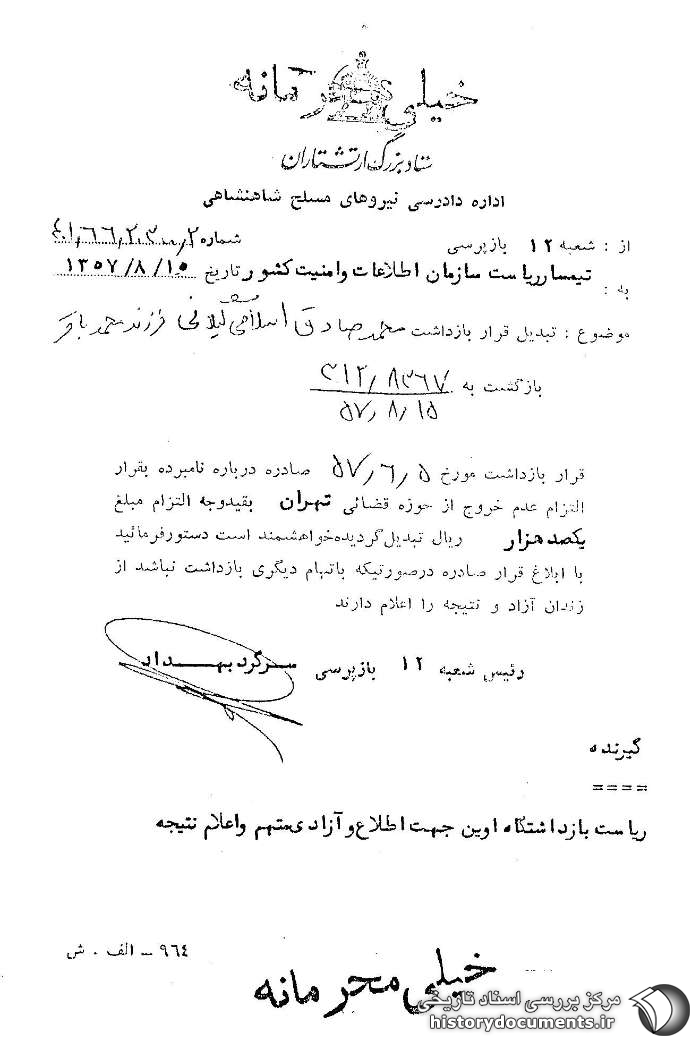 خیلی محرمانه
ستاد بزرگ ارتشتاران
اداره دادرسی نیروهای مسلح شاهنشاهی
از : شعبه ۱۲ بازپرسی شماره
به : تیمسار ریاست سازمان اطلاعات و امنیت کشور تاریخ ۱۳۵۷/۸/۱۵
موضوع : تبدیل قرار بازداشت محمد صادق اسلامی گیلانی فرزند محمد باقر
بازگشت به ۳۱۲/۸۳۶۷
۵۷/۸/۱۵
قرار بازداشت مورخ ۵۷/۶/۵ صادره درباره نامبرده بقرار
التزام عدم خروج از حوزه قضائی تهران بقید وجه التزام مبلغ
یکصد هزار ریال تبدیل گردیده خواهشمند است دستور فرمائید
با ابلاغ قرار صادره در صورتیکه باتهام دیگری بازداشت نباشد از
زندان آزاد و نتیجه را اعلام دارند
رئیس شعبه ۱۲ بازپرسی سرگرد بهداد
گیرنده
====
ریاست بازداشتگاه اوین جهت اطلاع و آزادی متهم و اعلام نتیجه
۹۶٤ - الف . ش
خیلی محرمانه
مرکز بررسی اسناد تاریخی
historydocuments.ir